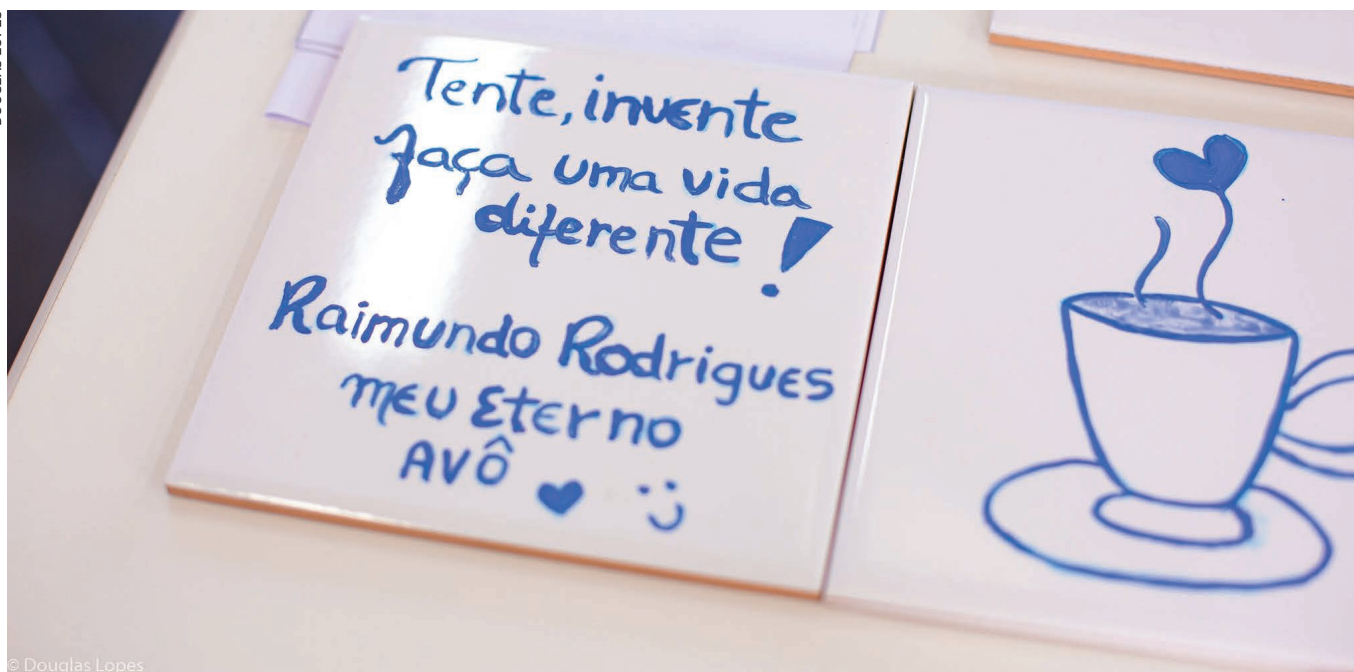 Tente, invente
faça uma vida
diferente!
Raimundo Rodrigues
meu Eterno
AVÔ
© Douglas Lopes